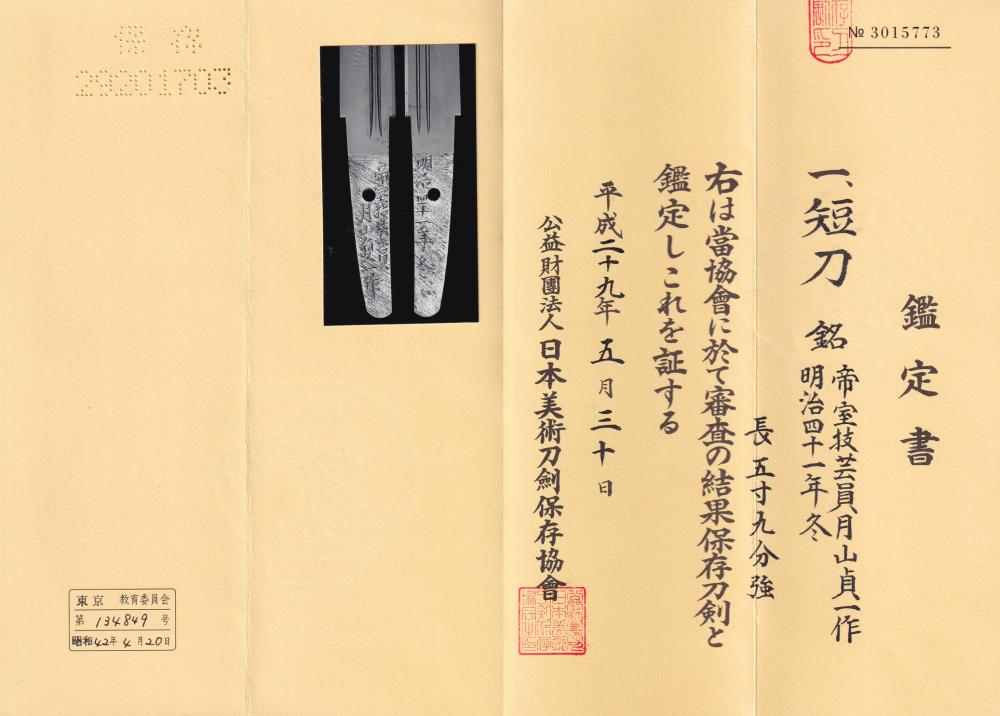 № 3015773
鑑定書
一、短刀 銘 帝室技芸員月山貞一作
明治四十一年冬
長五寸九分強
右は當協會に於て審査の結果保存刀剣と
鑑定しこれを証する
平成二十九年五月三十日
公益財團法人日本美術刀劍保存協會
保存
29201703
明治四十一年冬
月山貞一作
東京 教育委員会
第 134849 号
昭和42年4月20日